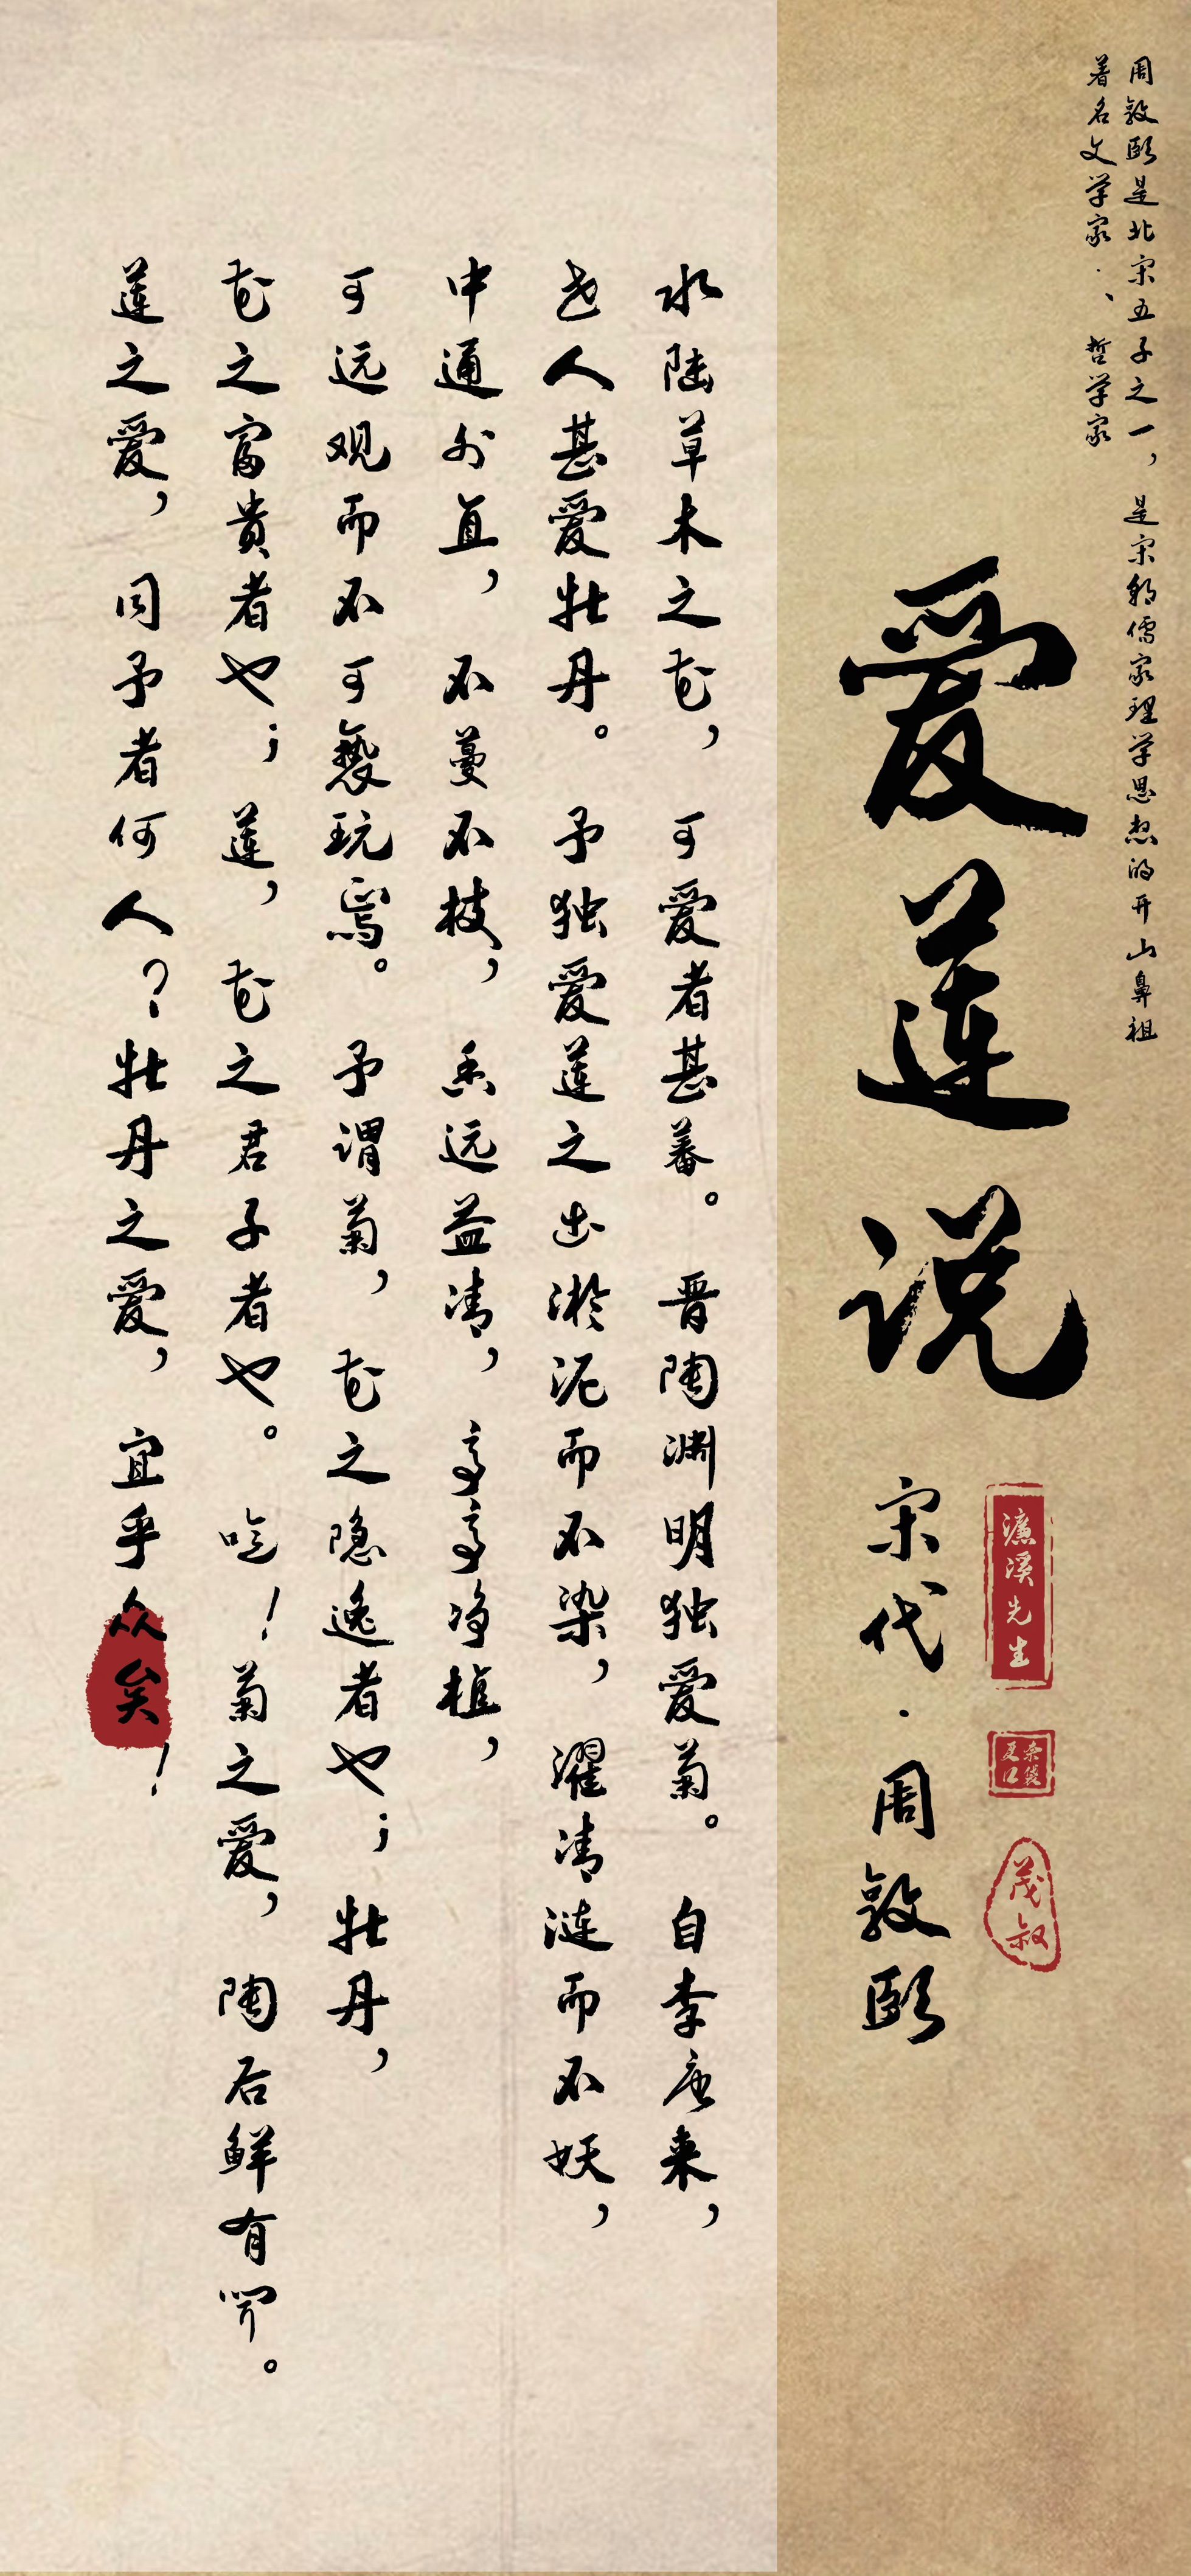 周敦颐是北宋五子之一，是宋朝儒家理学思想的开山鼻祖
著名文学家·、哲学家
爱莲说
宋代·周敦颐
濂溪先生
茂叔
水陆草木之花，可爱者甚蕃。晋陶渊明独爱菊。自李唐来，
世人甚爱牡丹。予独爱莲之出淤泥而不染，濯清涟而不妖，
中通外直，不蔓不枝，香远益清，亭亭净植，
可远观而不可亵玩焉。予谓菊，花之隐逸者也；牡丹，
花之富贵者也；莲，花之君子者也。噫！菊之爱，陶后鲜有闻。
莲之爱，同予者何人？牡丹之爱，宜乎众矣！